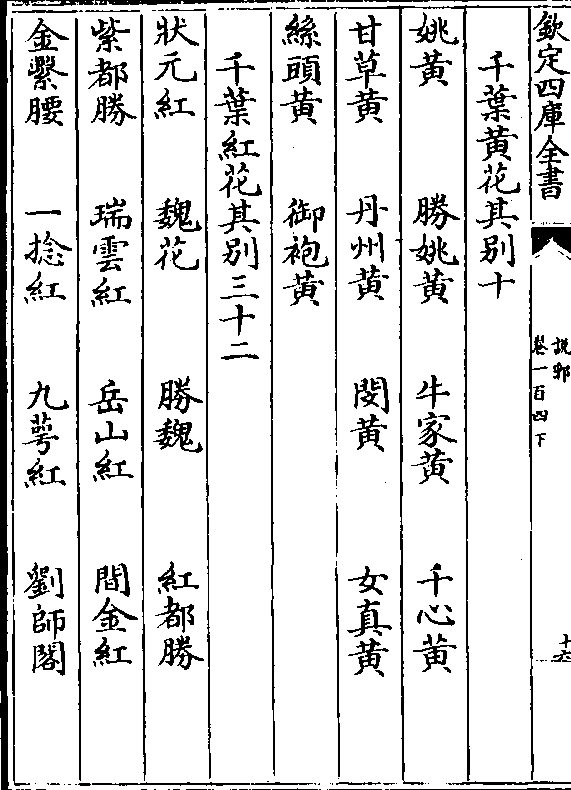 欽定四庫全書
說郛
卷一百四下
十六
千葉黃花其別十
姚黃 勝姚黃 牛家黃 千心黃
甘草黃 丹州黃 閔黃 女真黃
絲頭黃 御袍黃
千葉紅花其別三十二
狀元紅 魏花 勝魏 紅都勝
紫都勝 瑞雲紅 岳山紅 間金紅
金繫腰 一捻紅 九萼紅 劉師閣